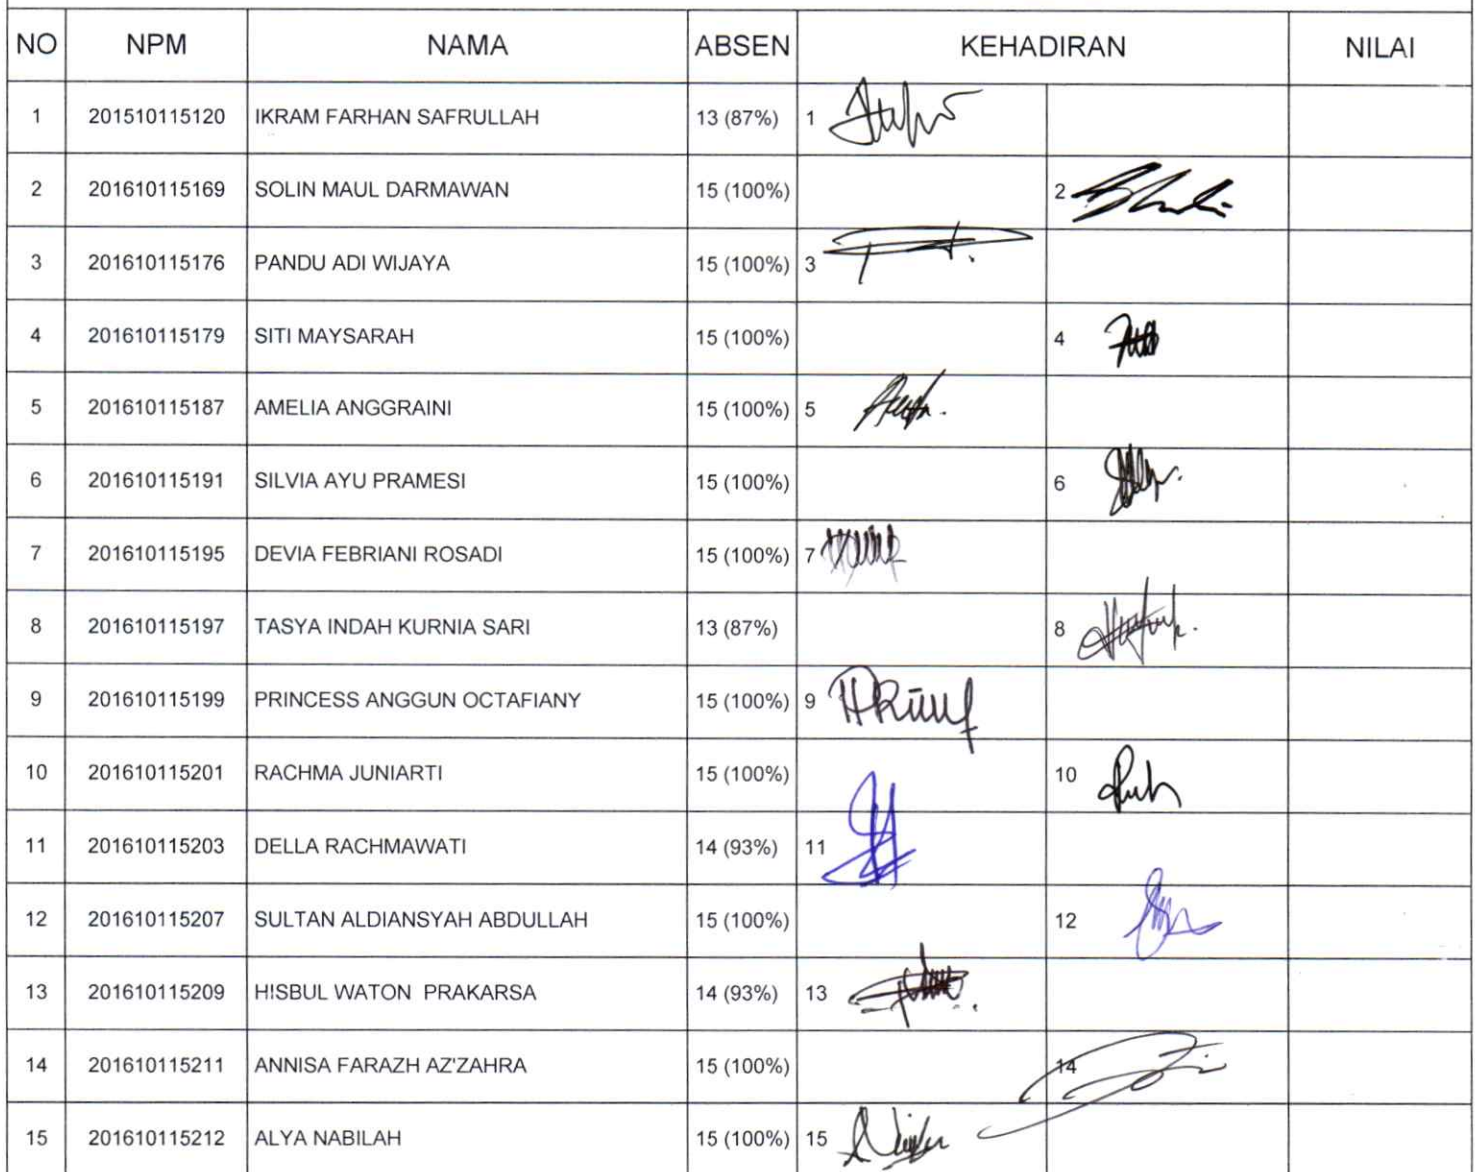 NO NPM NAMA ABSEN KEHADIRAN NILAI
1 201510115120 IKRAM FARHAN SAFRULLAH 13 (87%) 1
2 201610115169 SOLIN MAUL DARMAWAN 15 (100%) 2
3 201610115176 PANDU ADI WIJAYA 15 (100%) 3
4 201610115179 SITI MAYSARAH 15 (100%) 4
5 201610115187 AMELIA ANGGRAINI 15 (100%) 5
6 201610115191 SILVIA AYU PRAMESI 15 (100%) 6
7 201610115195 DEVIA FEBRIANI ROSADI 15 (100%) 7
8 201610115197 TASYA INDAH KURNIA SARI 13 (87%) 8
9 201610115199 PRINCESS ANGGUN OCTAFIANY 15 (100%) 9
10 201610115201 RACHMA JUNIARTI 15 (100%) 10
11 201610115203 DELLA RACHMAWATI 14 (93%) 11
12 201610115207 SULTAN ALDIANSYAH ABDULLAH 15 (100%) 12
13 201610115209 HISBUL WATON PRAKARSA 14 (93%) 13
14 201610115211 ANNISA FARAZH AZ'ZAHRA 15 (100%) 14
15 201610115212 ALYA NABILAH 15 (100%) 15